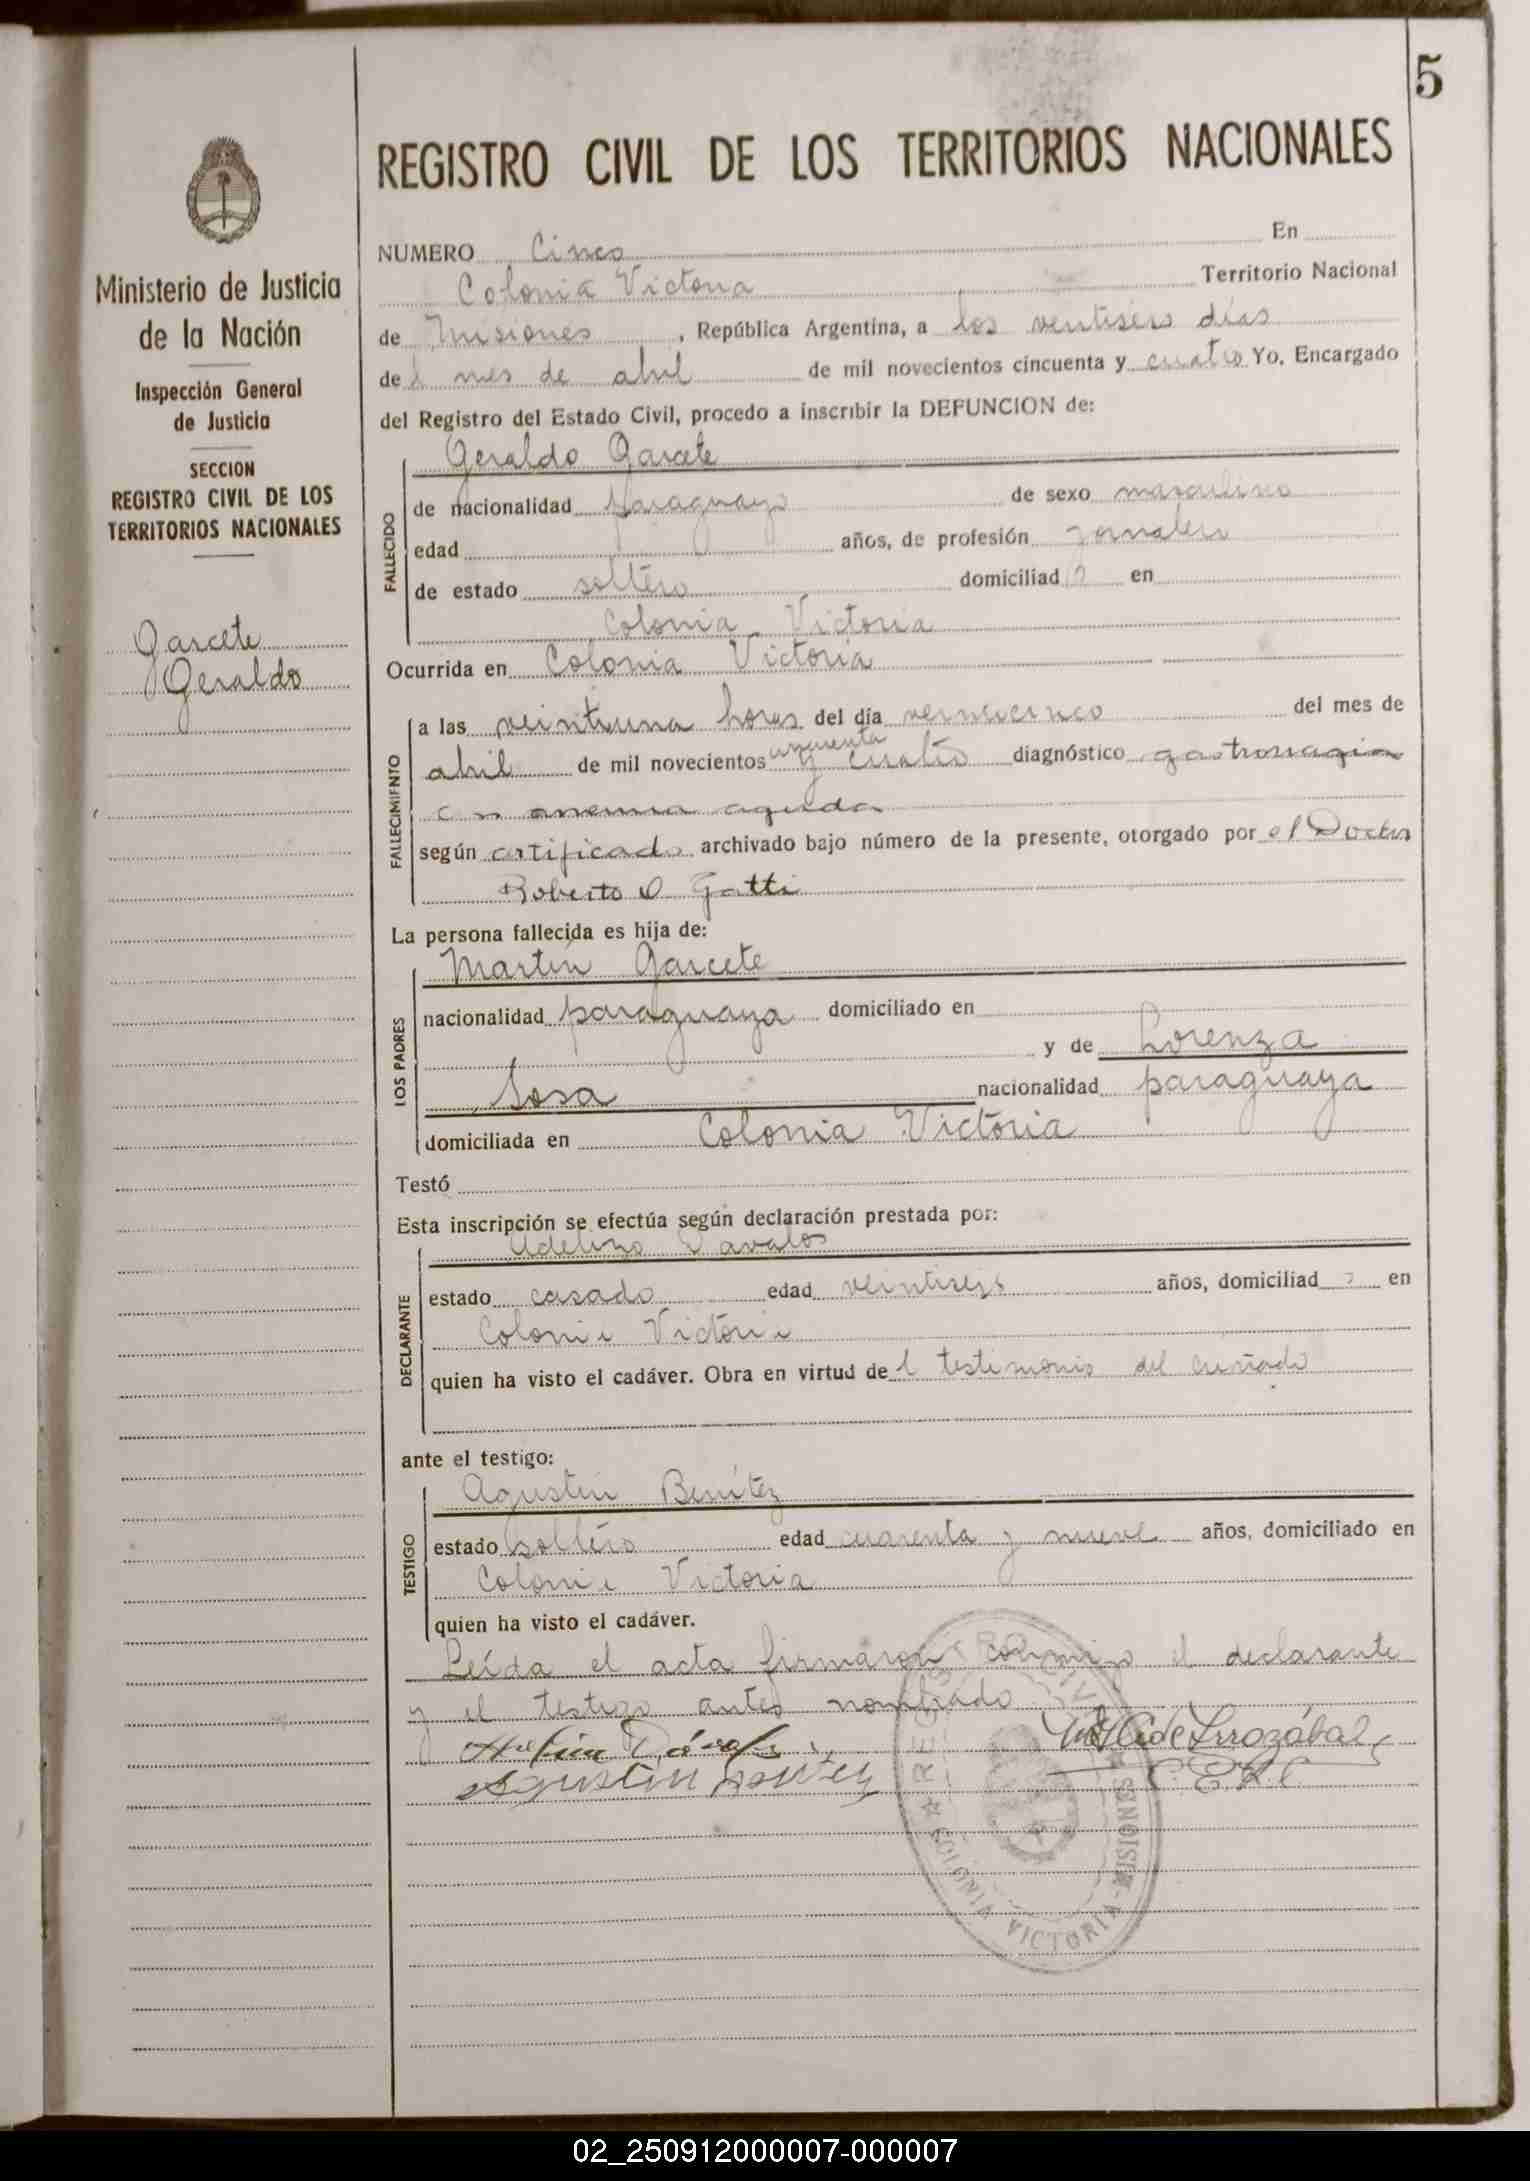 5
REGISTRO CIVIL DE LOS TERRITORIOS NACIONALES
Ministerio de Justicia
de la Nación
Inspección General
de Justicia
SECCION
REGISTRO CIVIL DE LOS
TERRITORIOS NACIONALES
Garcete
Geraldo
NUMERO Cinco En
Colonia Victoria Territorio Nacional
de Misiones, República Argentina, a los ventiseis días
del mes de abril de mil novecientos cincuenta y cuatro Yo, Encargado
del Registro del Estado Civil, procedo a inscribir la DEFUNCION de:
Geraldo Garcete
FALLECIDO
de nacionalidad paraguayo de sexo masculino
edad años, de profesión jornalero
de estado soltero domiciliado en
Colonia Victoria
Ocurrida en Colonia Victoria
FALLECIMIENTO
a las veintiuna horas del día veinticinco del mes de
abril de mil novecientos cincuenta y cuatro diagnóstico gastrorragia
con anemia aguda
según certificado archivado bajo número de la presente, otorgado por el Doctor
Roberto O Gatti
La persona fallecida es hija de:
LOS PADRES
Martín Garcete
nacionalidad paraguaya domiciliado en
y de Lorenza
Sosa nacionalidad paraguaya
domiciliada en Colonia Victoria
Testó
Esta inscripción se efectúa según declaración prestada por:
DECLARANTE
Adelino Davalos
estado casado edad veintiseis años, domiciliado en
Colonia Victoria
quien ha visto el cadáver. Obra en virtud del testimonio del cuñado
ante el testigo:
TESTIGO
Agustín Benítez
estado soltero edad cuarenta y nueve años, domiciliado en
Colonia Victoria
quien ha visto el cadáver.
Leída el acta firmaron conmigo el declarante
y el testigo antes nombrado
Dávalos de Irrazábal
Agustin Benítez E.R.C.
REGISTRO CIVIL
COLONIA VICTORIA - MISIONES
02_250912000007-000007